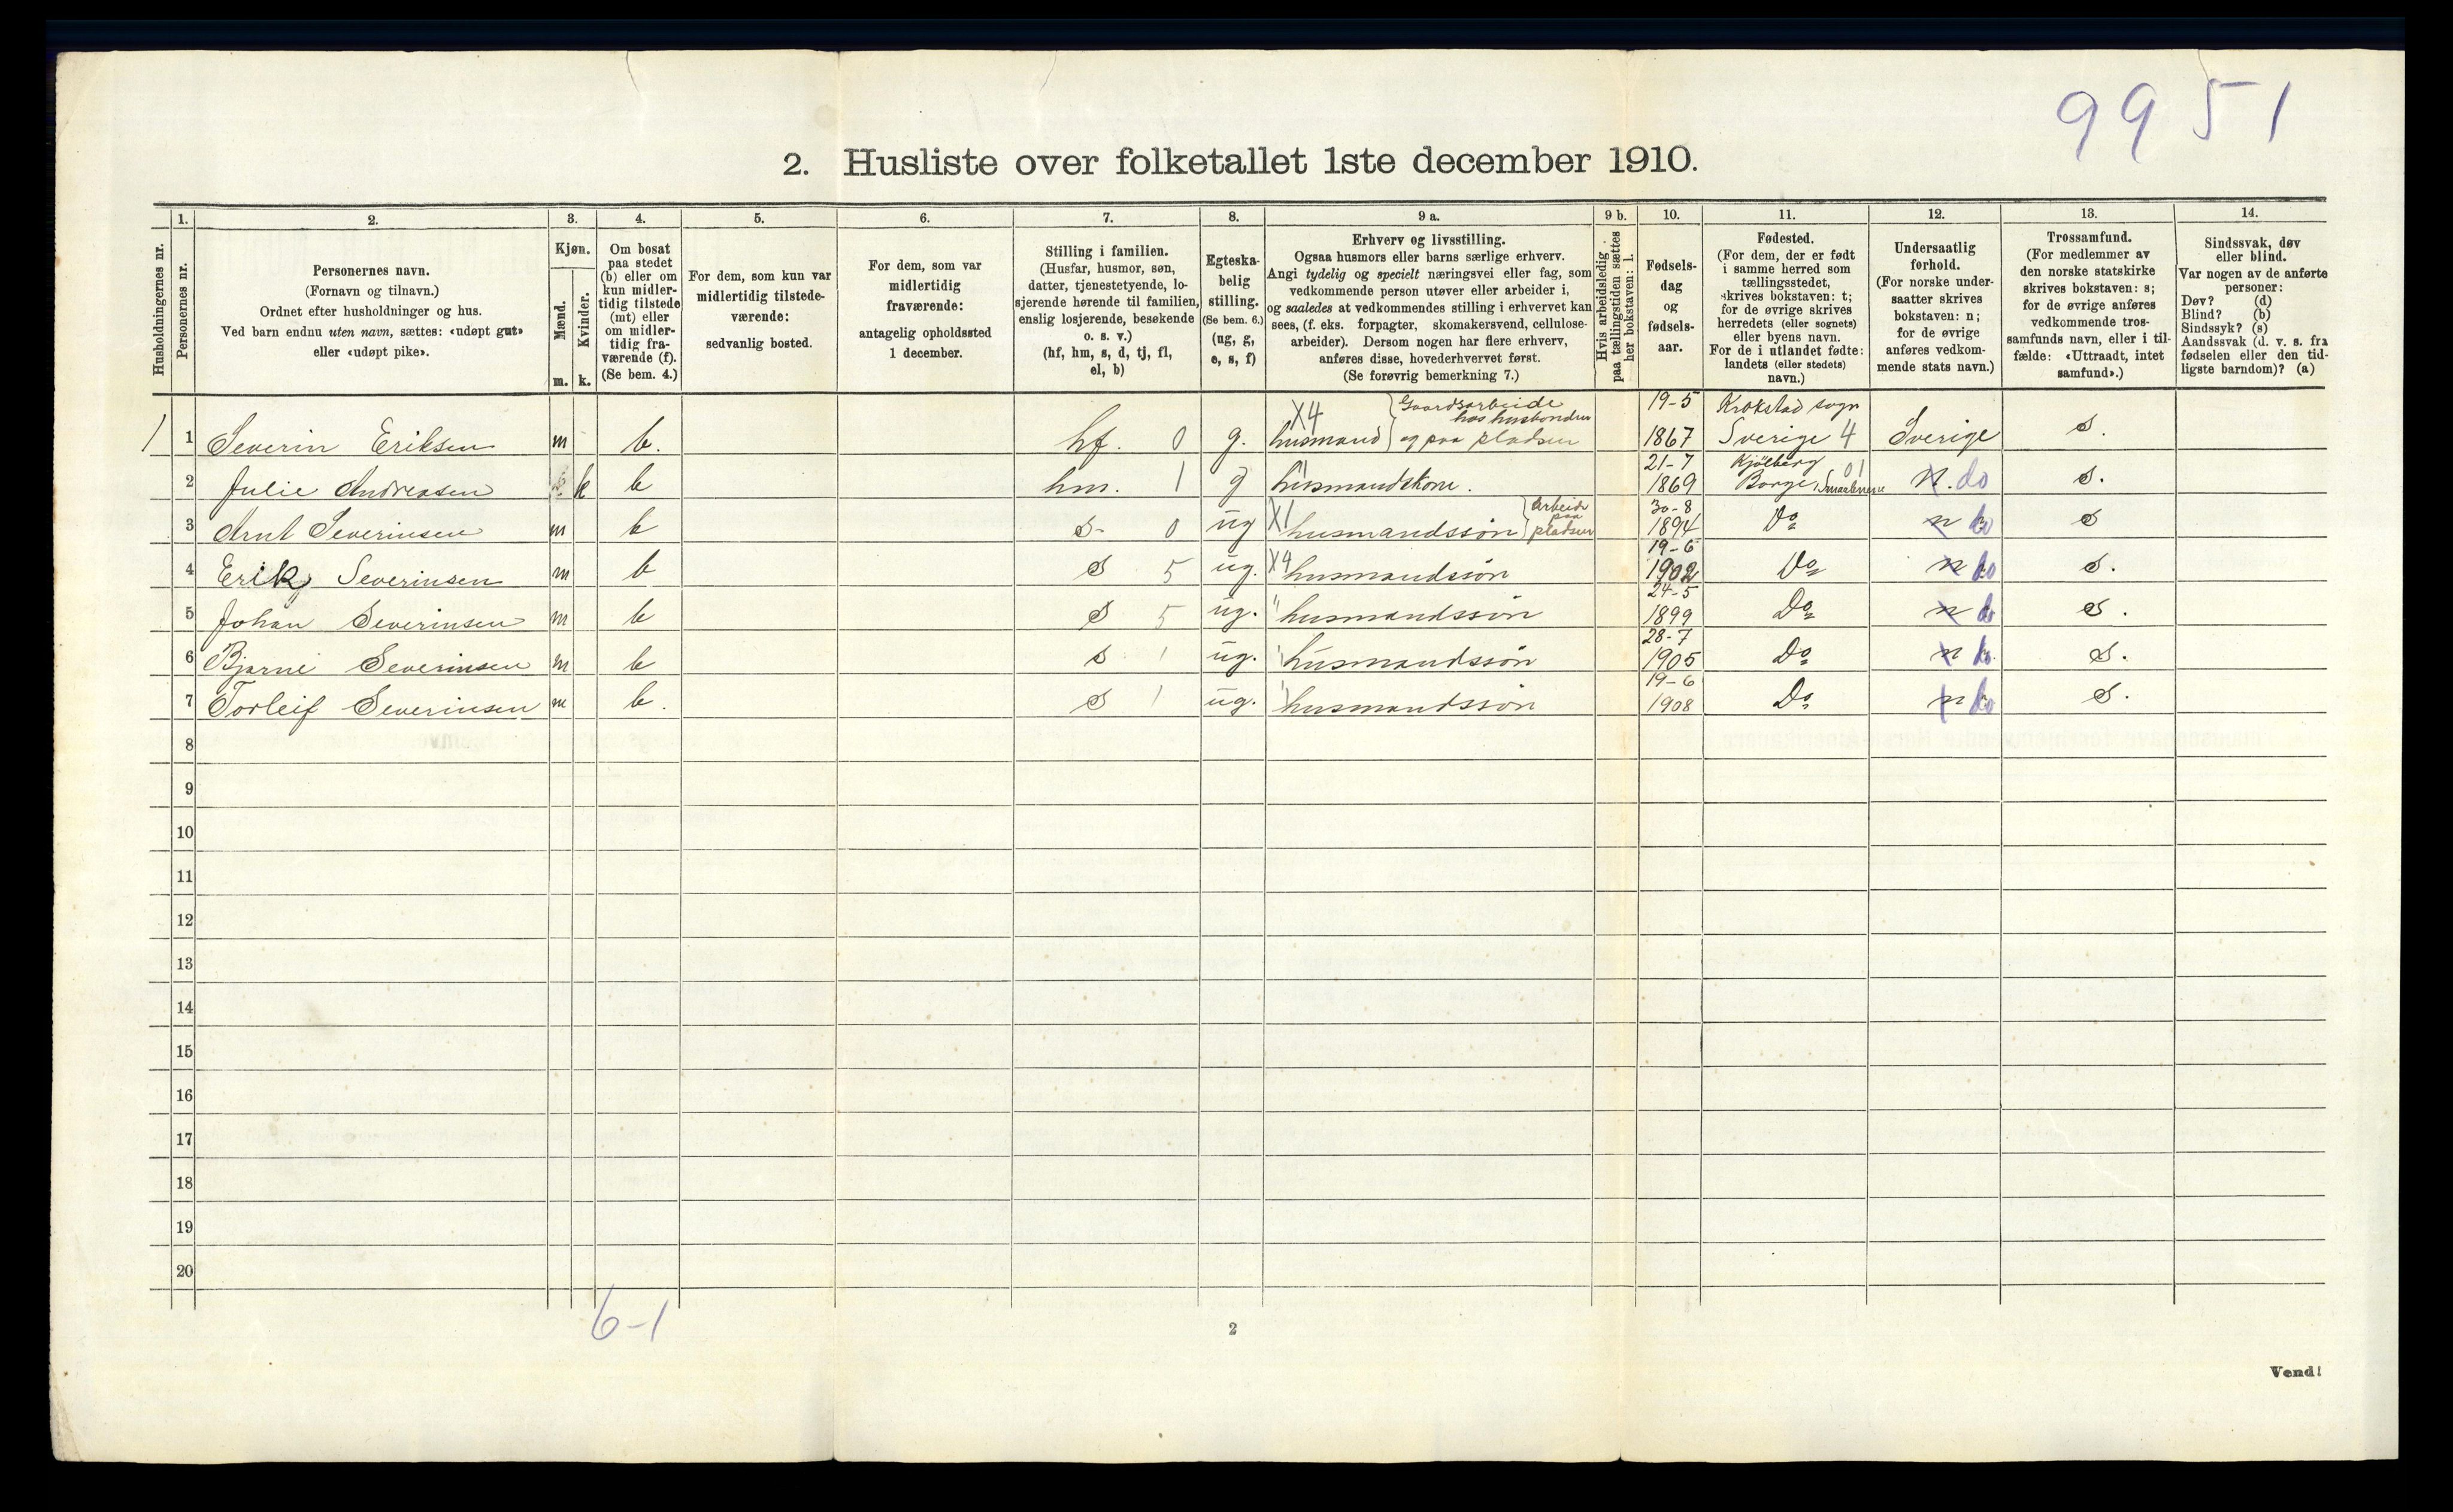 9951
2. Husliste over folketallet 1ste december 1910.
Husholdningernes nr.
1.
Personernes nr.
2.
Personernes navn.
(Fornavn og tilnavn.)
Ordnet efter husholdninger og hus.
Ved barn endnu uten navn, sættes: «udøpt gut»
eller «udøpt pike».
3.
Kjøn.
Mænd.
Kvinder.
m. k.
4.
Om bosat
paa stedet
(b) eller om
kun midler-
tidig tilstede
(mt) eller
om midler-
tidig fra-
værende (f).
(Se bem. 4.)
5.
For dem, som kun var
midlertidig tilstede-
værende:
sedvanlig bosted.
6.
For dem, som var
midlertidig
fraværende:
antagelig opholdssted
1 december.
7.
Stilling i familien.
(Husfar, husmor, søn,
datter, tjenestetyende, lo-
sjerende hørende til familien,
enslig losjerende, besøkende
o. s. v.)
(hf, hm, s, d, tj, fl,
el, b)
8.
Egteska-
belig
stilling.
(Se bem. 6.)
(ug, g,
e, s, f)
9 a.
Erhverv og livsstilling.
Ogsaa husmors eller barns særlige erhverv.
Angi tydelig og specielt næringsvei eller fag, som
vedkommende person utøver eller arbeider i,
og saaledes at vedkommendes stilling i erhvervet kan
sees, (f. eks. forpagter, skomakersvend, cellulose-
arbeider). Dersom nogen har flere erhverv,
anføres disse, hovederhvervet først.
(Se forøvrig bemerkning 7.)
9 b.
Hvis arbeidsledig
paa tællingstiden sættes
her bokstaven: l.
10.
Fødsels-
dag
og
fødsels-
aar.
11.
Fødested.
(For dem, der er født
i samme herred som
tællingsstedet,
skrives bokstaven: t;
for de øvrige skrives
herredets (eller sognets)
eller byens navn.
For de i utlandet fødte:
landets (eller stedets)
navn.)
12.
Undersaatlig
forhold.
(For norske under-
saatter skrives
bokstaven: n;
for de øvrige
anføres vedkom-
mende stats navn.)
13.
Trossamfund.
(For medlemmer av
den norske statskirke
skrives bokstaven: s;
for de øvrige anføres
vedkommende tros-
samfunds navn, eller i til-
fælde: «Uttraadt, intet
samfund».)
14.
Sindssvak, døv
eller blind.
Var nogen av de anførte
personer:
Døv? (d)
Blind? (b)
Sindssyk? (s)
Aandssvak (d. v. s. fra
fødselen eller den tid-
ligste barndom)? (a)
X4 Gaardsarbeide hos husbonden 19-5 Krokstad sogn
1 1 Severin Eriksen m b. hf. 0 g. husmand og paa pladsen 1867 Sverige 4 Sverige s.
21-7 Kjölberg 01
2 Julie Andreasen k b hm. 1 g husmandskone. 1869 Borge, Smaalenene n. do s.
Arbeide paa 30-8
3 Arnt Severinsen m b s- 0 ug X1 husmandssön pladsen 1894 Do n do s
19-6
4 Erik Severinsen m b s 5 ug. X4 husmandssön 1902 Do n do s.
24-5
5 Johan Severinsen m b s 5 ug. " husmandssön 1899 Do n do s.
28-7
6 Bjarne Severinsen m b s 1 ug. husmandssön 1905 Do n do. s.
19-6
7 Torleif Severinsen m b. s 1 ug. husmandssön 1908 Do n do s.
8
9
10
11
12
13
14
15
16
17
18
19
20
6-1
2
Vend!